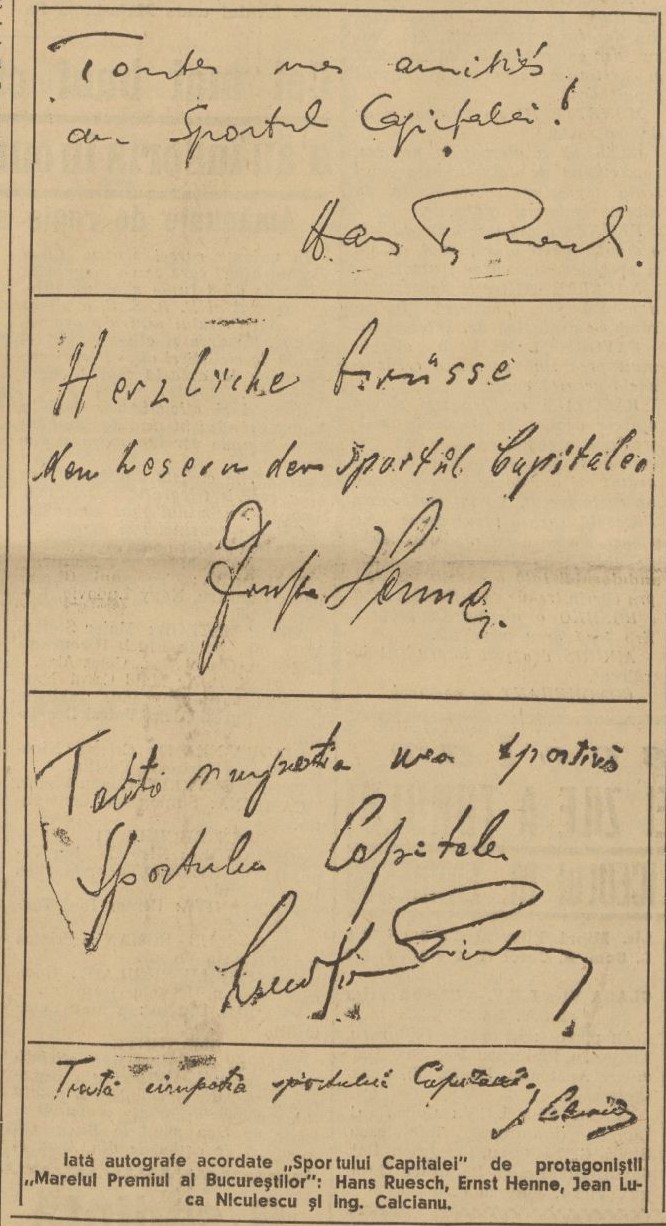 Toutes mes amitiés
au Sportul Capitalei!
Hans Ruesch.
Herzliche Grüsse
den Lesern der Sportul Capitalei
Ernst Henne.
Toată simpatia mea sportivă
Sportului Capitalei
Toată simpatia sportului Capitalei.
Iată autografe acordate „Sportului Capitalei” de protagoniștii
„Marelui Premiul al Bucureștilor”: Hans Ruesch, Ernst Henne, Jean Lu-
ca Niculescu și ing. Calcianu.